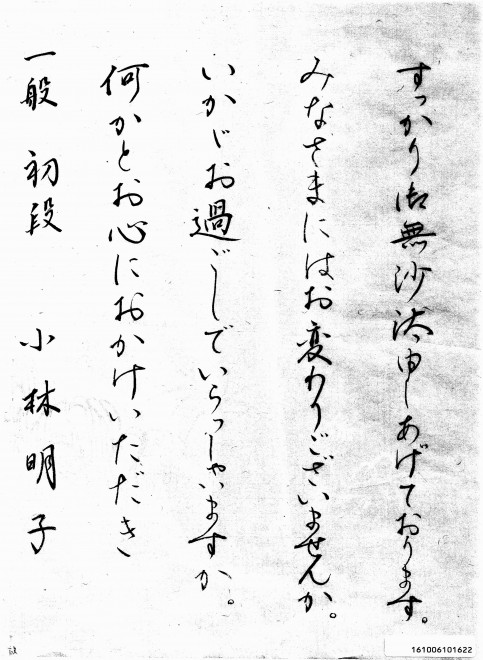 すっかり御無沙汰申しあげております。
みなさまにはお変わりございませんか。
いかがお過ごしでいらっしゃいますか。
何かとお心におかけいただき
一般 初段 小林明子
161006101622